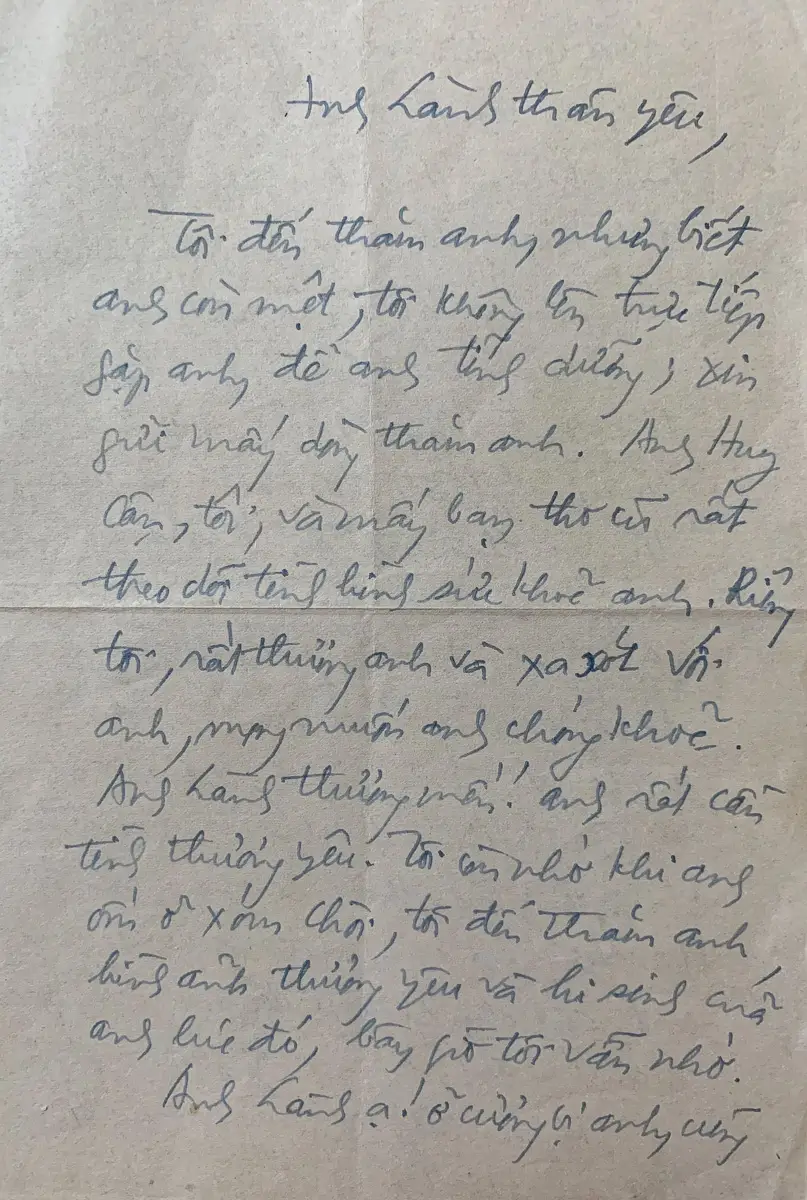 Anh Lành thân yêu,
Tôi đến thăm anh, nhưng biết
anh còn mệt, tôi không lên trực tiếp
gặp anh, để anh tĩnh dưỡng; xin
gửi mấy dòng thăm anh. Anh Huy
Cận, tôi, và mấy bạn thơ cũ rất
theo dõi tình hình sức khoẻ anh. Riêng
tôi, rất thương anh và xa xót với
anh, mong muốn anh chóng khoẻ.
Anh Lành thương mến! anh rất cần
tình thương yêu. Tôi còn nhớ khi anh
ốm ở xóm Chòi, tôi đến thăm anh,
hình ảnh thương yêu và hi sinh của
anh lúc đó, bây giờ tôi vẫn nhớ.
Anh Lành ạ! ở cương vị anh, cũng